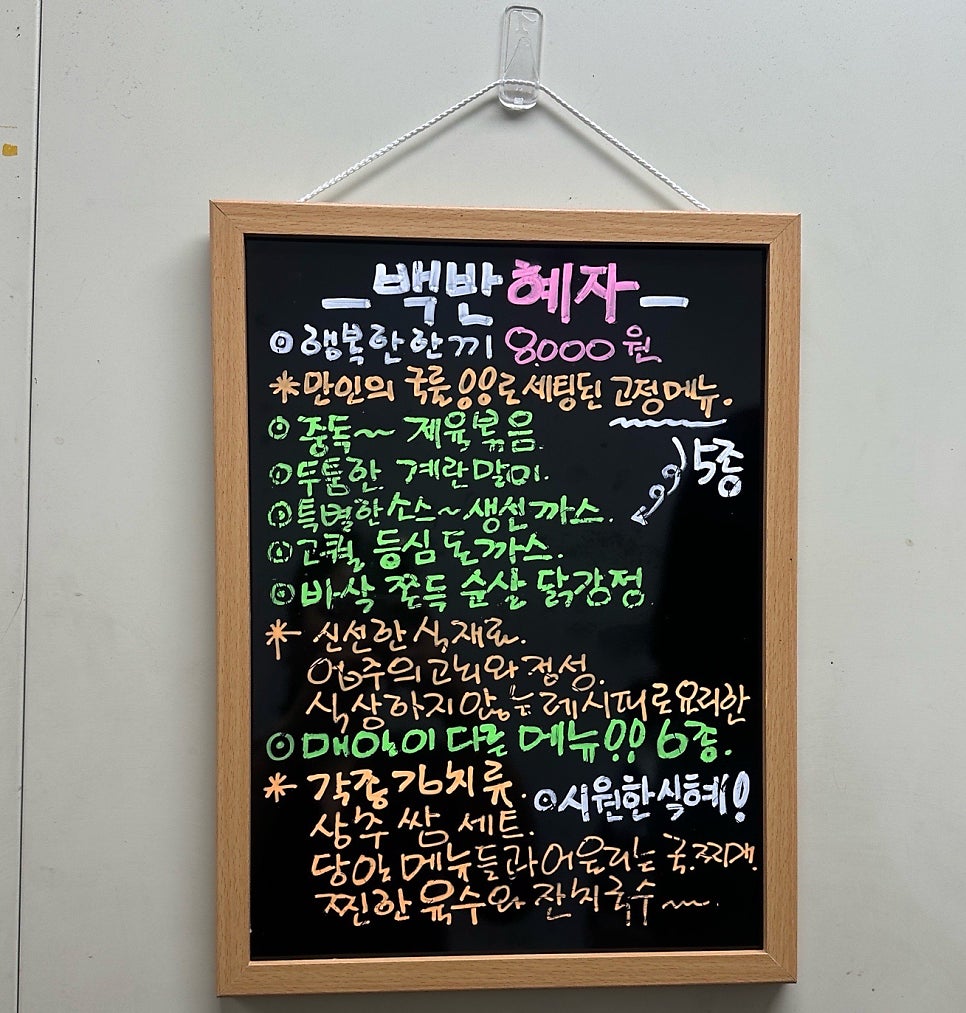 백반혜자
⊙ 행복한한끼 8.000원
* 만인의 국룰!!로 세팅된 고정메뉴.
5종
⊙ 중독~ 제육볶음.
⊙ 두툼한 계란말이.
⊙ 특별한소스~생선까스.
⊙ 고퀄 등심 돈까스.
⊙ 바삭 쫀득 순살 닭강정
* 신선한 식재료.
업주의고뇌와정성.
식상하지않는레시피로요리한
⊙ 매일이 다른 메뉴!! 6종.
* 각종김치류.
⊙시원한식혜!
상추 쌈 세트.
당일메뉴들과어울리는 국.찌개.
찐한 육수와 잔치국수~